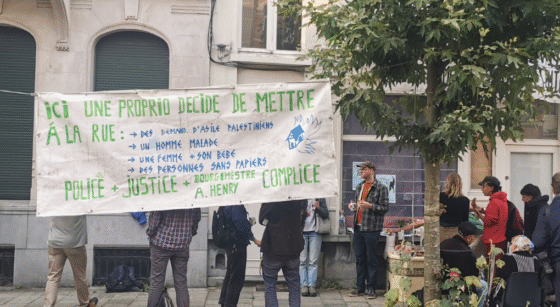 iCi UNE PROPRIO DECIDE DE METTRE
À LA RUE :
→ DES DEMAND. D'ASILE PALESTINIENS
→ UN HOMME MALADE
→ UNE FEMME + SON BEBE
→ DES PERSONNES SANS PAPIERS
POLICE + JUSTICE + BOURGMESTRE A. HENRY COMPLICE